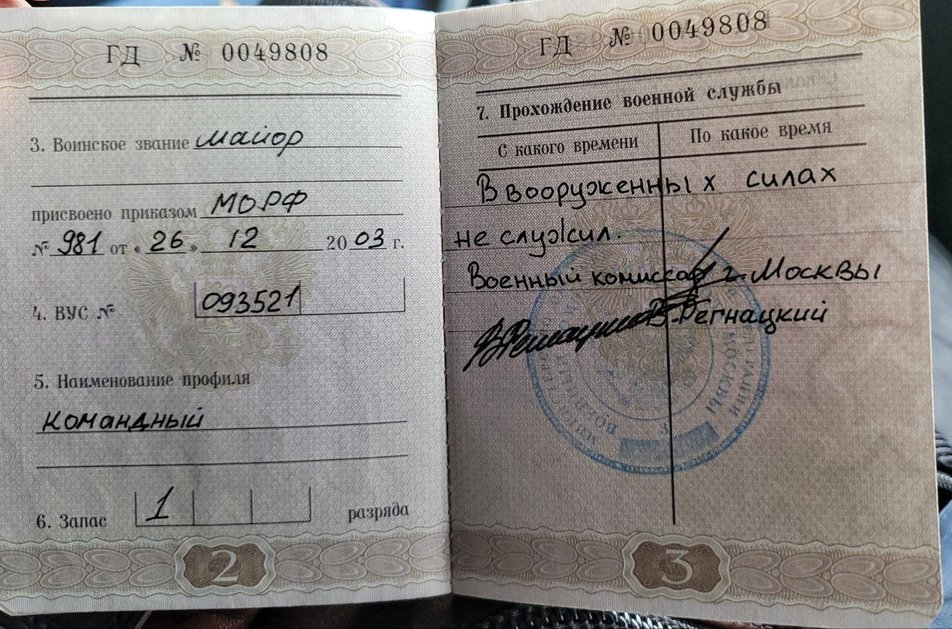 ГД № 0049808
3. Воинское звание майор
присвоено приказом МО РФ
№ 981 от « 26 » 12 2003 г.
4. ВУС № 093521
5. Наименование профиля
командный
6. Запас 1 разряда
2
ГД № 0049808
7. Прохождение военной службы
С какого времени По какое время
В вооруженных силах
не служил.
Военный комиссар г. Москвы
В. Регнацкий
3